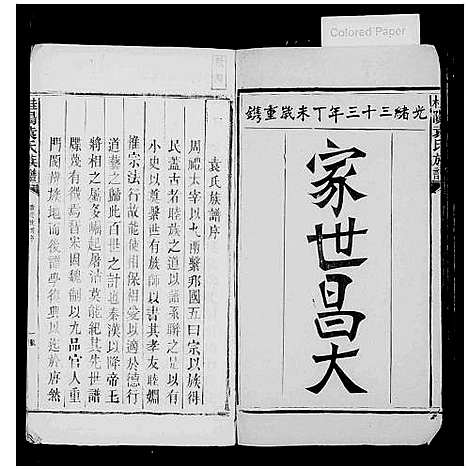 Colored Paper
桂陽袁氏族譜
光緒三十三年丁未歲重鐫
家世昌大
袁氏族譜序
周禮太宰以九兩繫邦國五曰宗以族得
民蓋古者睦族之道以譜系聯之是以有
小史以奠繫世有族師以書其孝友睦婣
雖宗法行故能使相保相愛以適於德行
道藝之歸此百世之計也秦漢以降帝王
將相之屬多崛起屠沽莫能紀其先世譜
牒幾有微焉晉宋因魏制以九品官人重
門閥尚族地而後譜學復興以迄於唐然
桂陽袁氏族譜